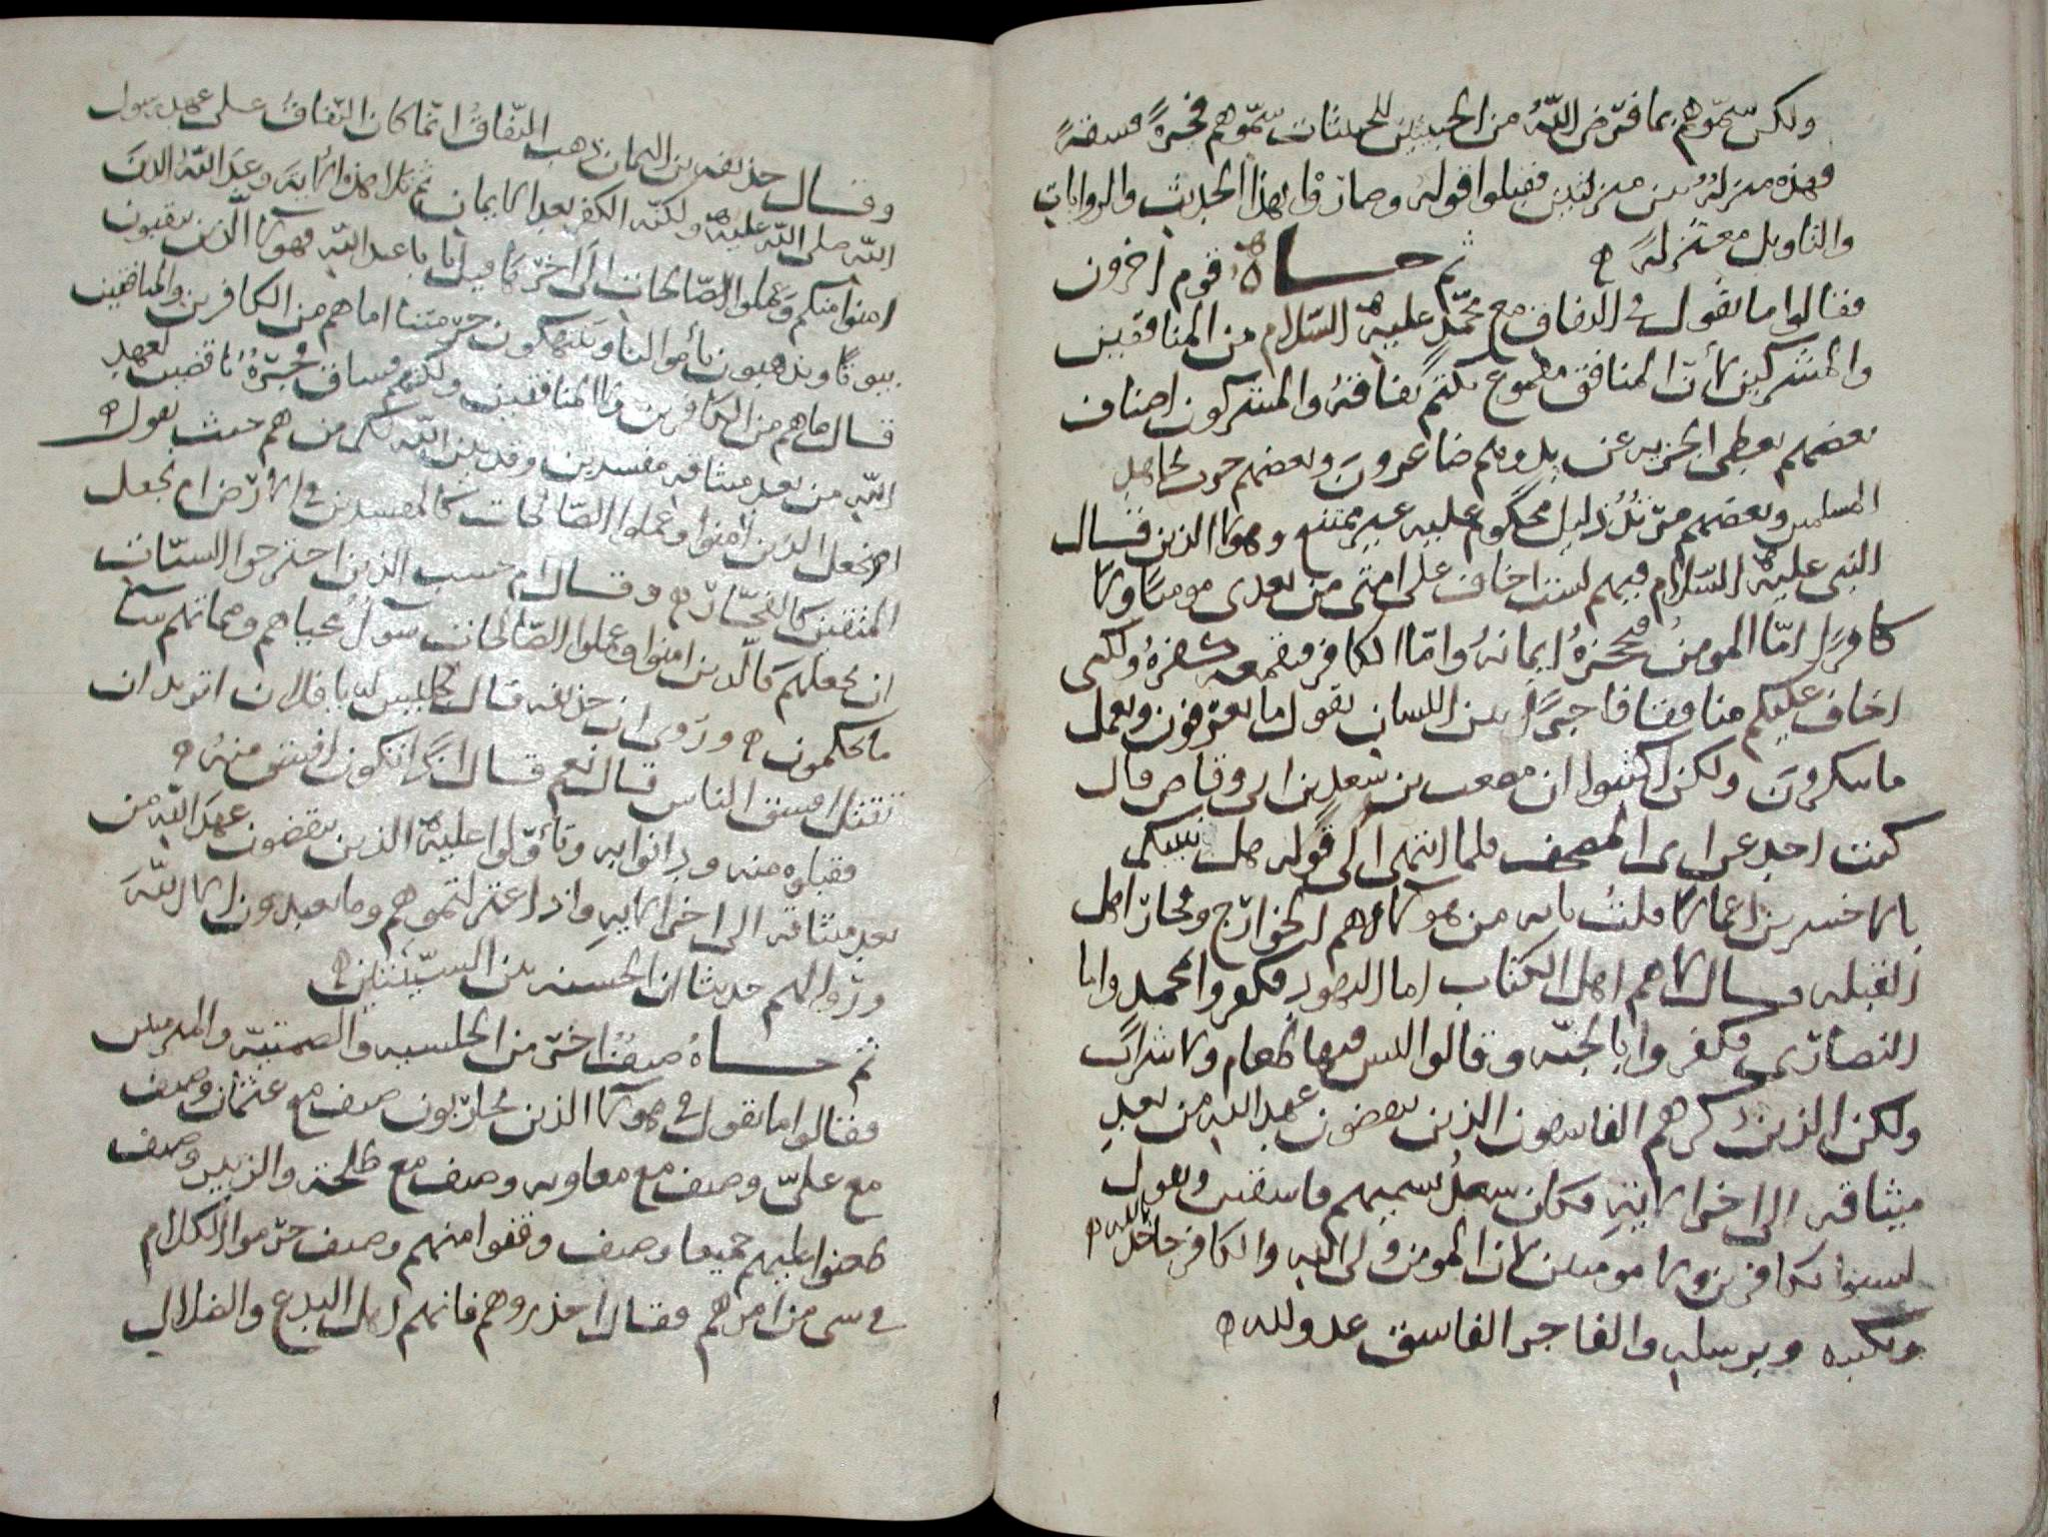 ولكن سمّوهم بما فرض اللّهُ من الخبيثين للخبيثات سمّوهم فجرةً فسقةً
فهذه منزلةٌ بين منزلتين فقبلوا قوله وصار وا بهذا الحديث والروايات
والتاويل معتزلةً ه ثم جــاهُ قوم اخرون
فقالوا ما تقول في النفاق مع محمّدٍ عليه السّلام من المنافقين
والمشركين لأنّ المنافق مقموع يكتم نفاقهُ والمشركون اصناف
بعضهم يعطي الجزيه عن يدٍ وهم صاغرونَ وبعضهم حرب لاهل
المسلمين وبعضهم مرتدٌ ذليل محكوم عليه غير ممتنع وهولا الذين قــال
النبي عليه السّلام فيهم لست اخاف على امتي من بعدي مومنًا ولا
كافرًا امّا المومنُ فيحجزهُ ايمانهُ وامّا الكافر فيقمعه كفرهُ ولكني
اخاف عليكم منافقا فاجرًا بين اللسان يقول ما تعرفون ويعمل
ما تنكرونَ ولكن اكتبوا ان مصعب بن سعد بن ابي وقاص قال
كنت اخذ على ابي المصحف فلما انتهى الى قوله هل ننبيكم
بالاخسرين اعمالا قلتُ يا ابه من هولا اهم الخوارج وتجار اهل
القبله قــال لا هم اهل الكتاب اما اليهود فكفروا بمحمد واما
النصارى فكفروا بالجنّه وقالوا ليس فيها طعام ولا شرابٌ
ولكن الذين ذكرهم الفاسقون الذين ينقضون عهد الله من بعدِ
ميثاقه الى اخر الايةِ فكان سعدٌ يسميهم فاسقين ويقول
ليسوا بكافرين ولا مومنين لان المومن ولي الله والكافر جاحدٌ بالله ه
وبكتبه وبرسله والفاجر الفاسق عدو لله ه
وقــال حذيفه بن اليمان ذهب النّفاقُ انّما كان النّفاقُ على عهد رسول
اللّه صلى اللّه عليه ولكنّه الكفر بعد الايمان ثم تلا هذه الايةَ وعدَ اللّهُ الذينَ
امنوا منكم وعملوا الصّالحات الى اخرها قيل يا با عبد اللّه فهولا الّذين ينقبون
بيوتنا ويذهبون بأموالنا وينتهكون حرمتنا اما هم من الكافرين والمنافقين
قــال لا ما هم من الكافرين ولا المنافقين ولكنّهم فساق فجرةٌ ناقضين لعهدِ
اللّه من بعد ميثاقه مفسدين وقد بيّن اللّه لكم من هم حيث يقول ه
ام نجعل الذين امنوا وعملوا الصّالحات كالمفسدين في الارض ام نجعل
المتقين كالفجّار ه وقــال ام حسب الذين اجترحوا السيّات
ان نجعلهم كالّذين امنوا وعملوا الصّالحات سواءً محياهم ومماتهم سا
ما يحكمون ه وروى ان حذيفه قــال لجليس له يا فلان اتريد ان
تقتل افسق الناس قــال نعم قــال اذًا تكون افسق منهُ ه
فقبلوه منه ودانوا به وتأوّلوا عليه الذين ينقضون عهدَ اللّه من
بعد ميثاقه الى اخر الايهِ واذ اعتزلتموهم وما يعبدون الا اللّهَ
ورووا لهم حديثا ان الحسنه بين السيّئتين ه
ثم جــاهُ صنفُ اخر من الحلسيه والصمتيّه والمدمنين
فقالوا ما تقول في هولا الذين تحاربون صنف مع عثمان وصنف
مع عليّ وصنف مع معاويه وصنف مع طلحة والزبير وصنف
طعنوا عليهم جميعا وصنف وقفوا منهم وصنف حرّموا الكلام
في شي من امرهم فقــال احذروهم فانهم اهل البدع والضلال